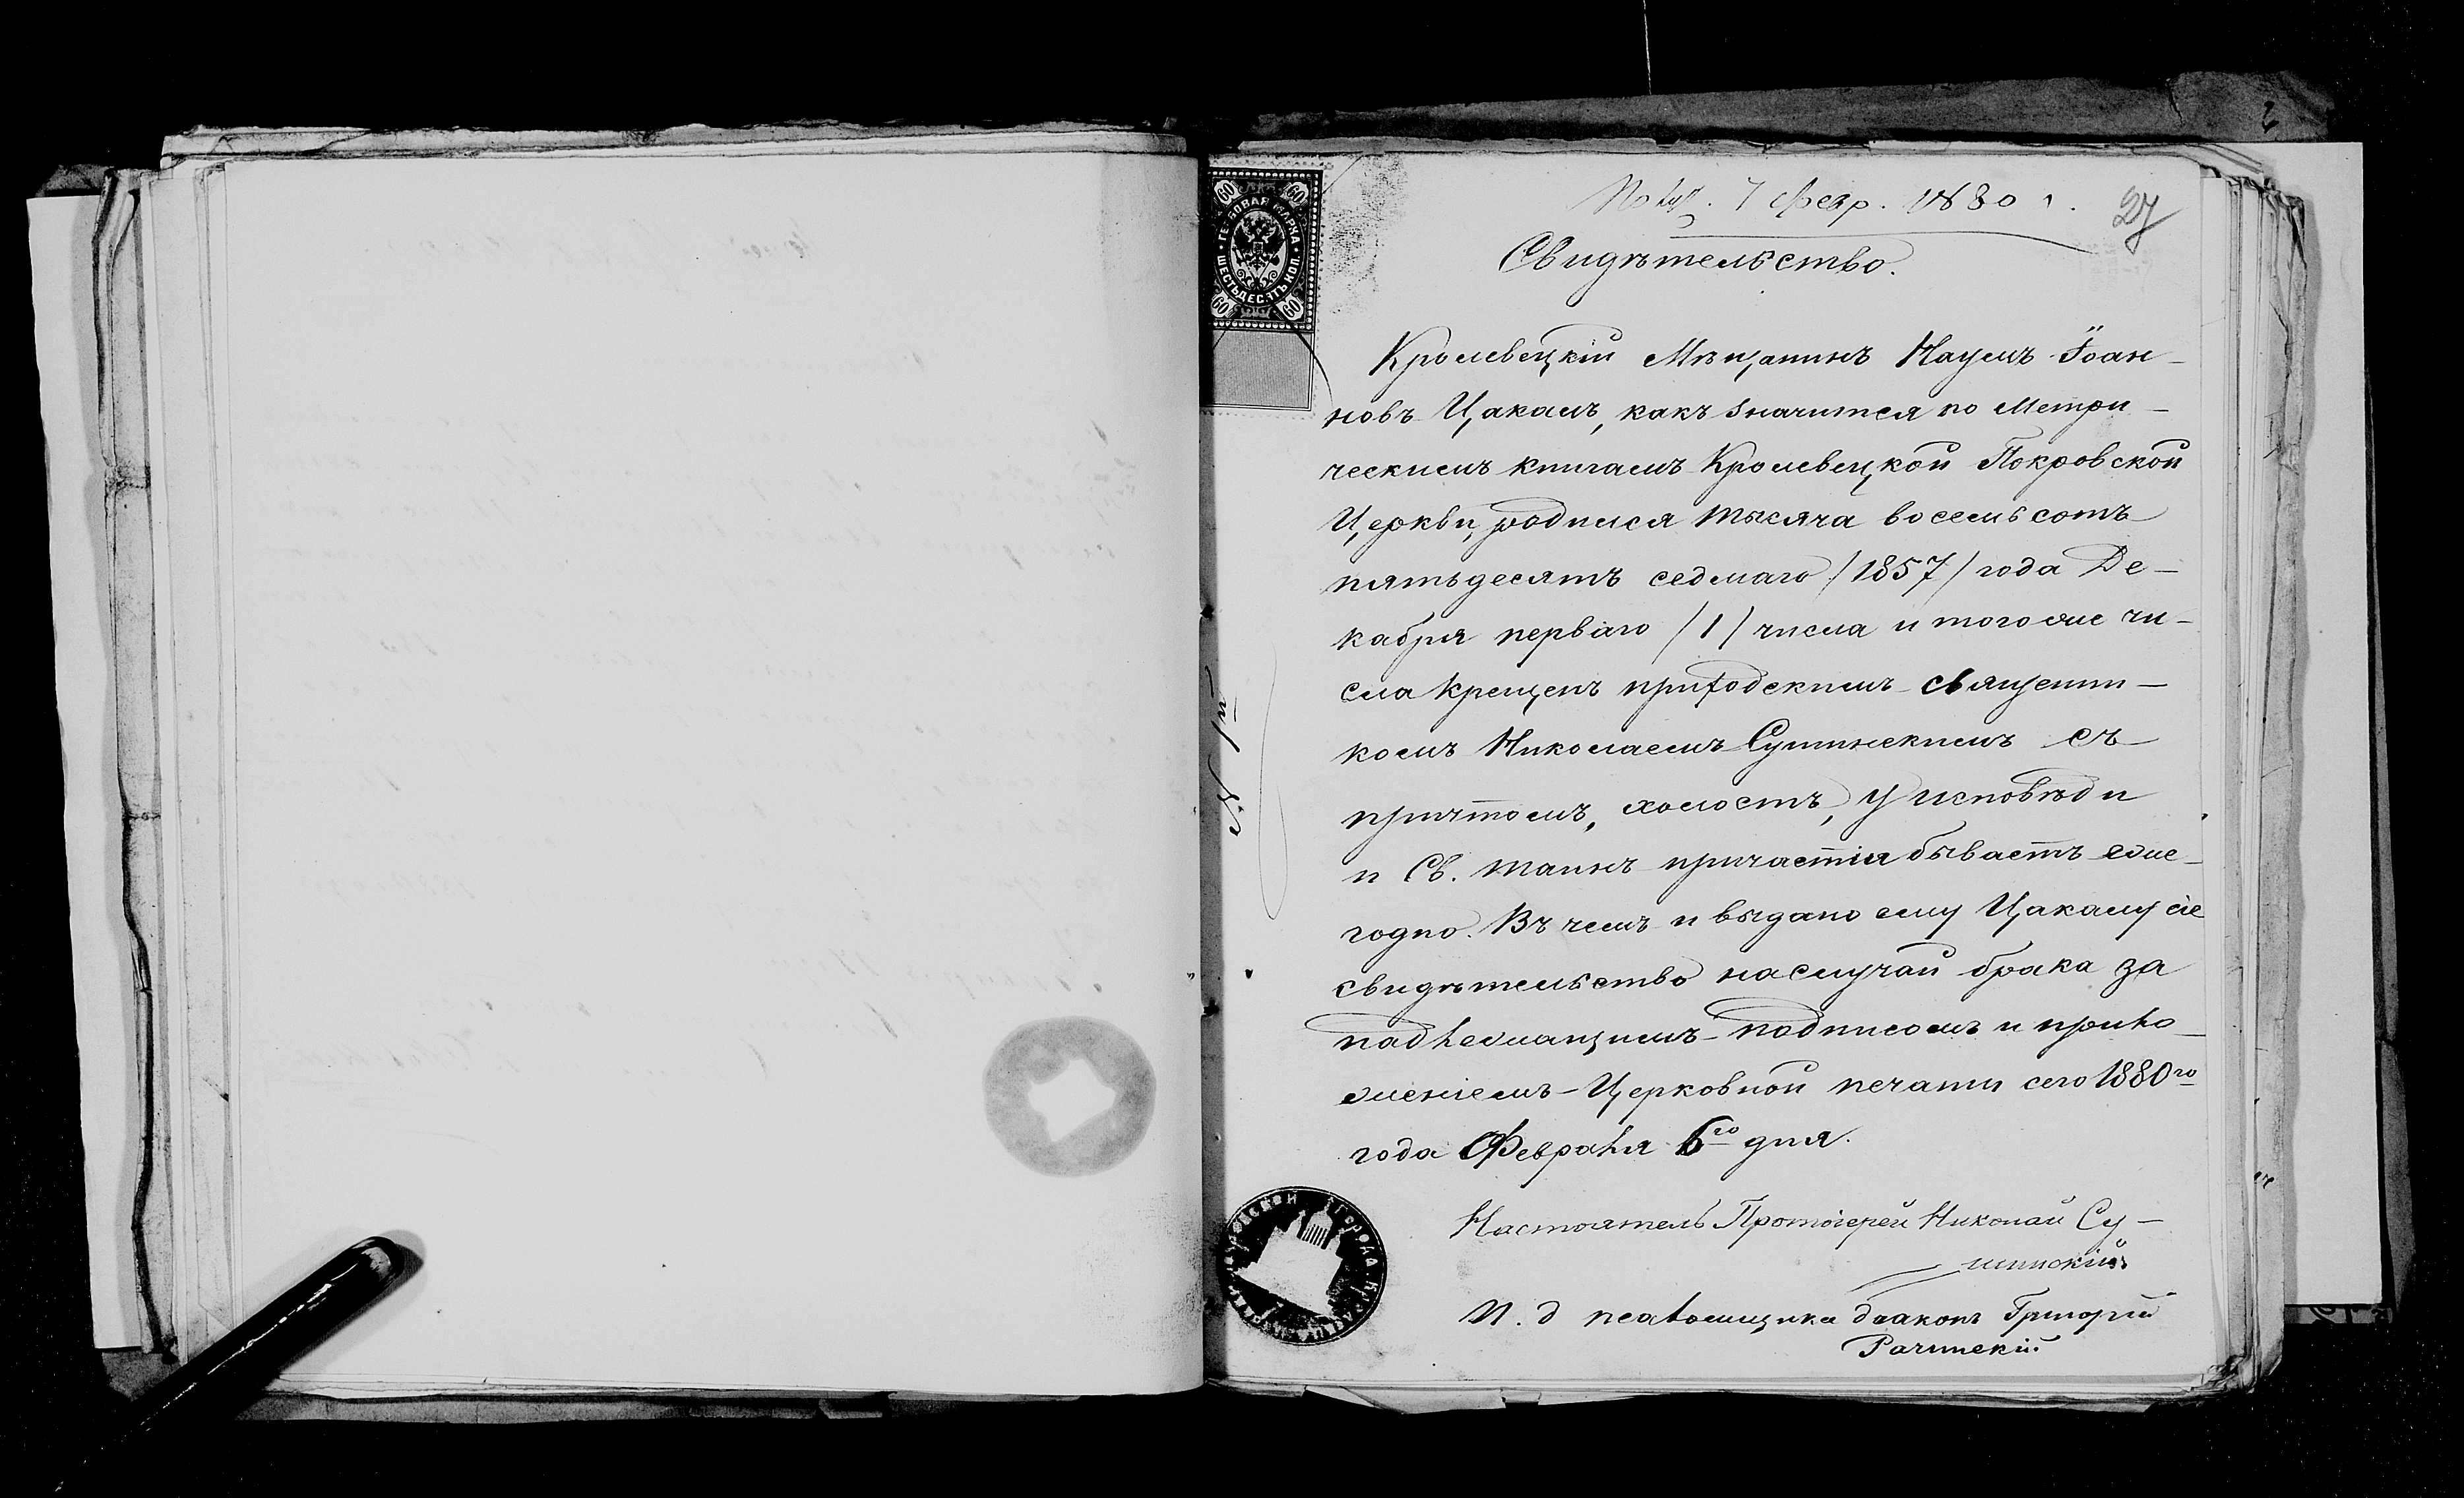 Получ. 7 февр. 1880 г.
27
Свидѣтельство.
60 60
ГЕРБОВАЯ МАРКА
ШЕСТЬДЕСЯТЪ КОП.
60 60
Кролевецкій Мѣщанинъ Наумъ Іоан-
новъ Цакамъ, какъ значится по Метри-
ческимъ книгамъ Кролевецкой Покровской
Церкви, родился тысяча восемьсотъ
пятьдесятъ седмаго /1857/ года Де-
кабря перваго /1/ числа и того же чи-
сла крещенъ приходскимъ священни-
комъ Николаемъ Сушинскимъ съ
причтомъ, холостъ, у исповѣди
и Св. таинъ причастія бываетъ еже-
годно. Въ чемъ и выдано ему Цакаму сіе
свидѣтельство на случай брака за
надлежащимъ подписомъ и прило-
женіемъ Церковной печати сего 1880го
года Февраля 6го дня.
Настоятель Протоіерей Николай Су-
шинскій
И. д псаломщика діаконъ Григорій
Рачинскій